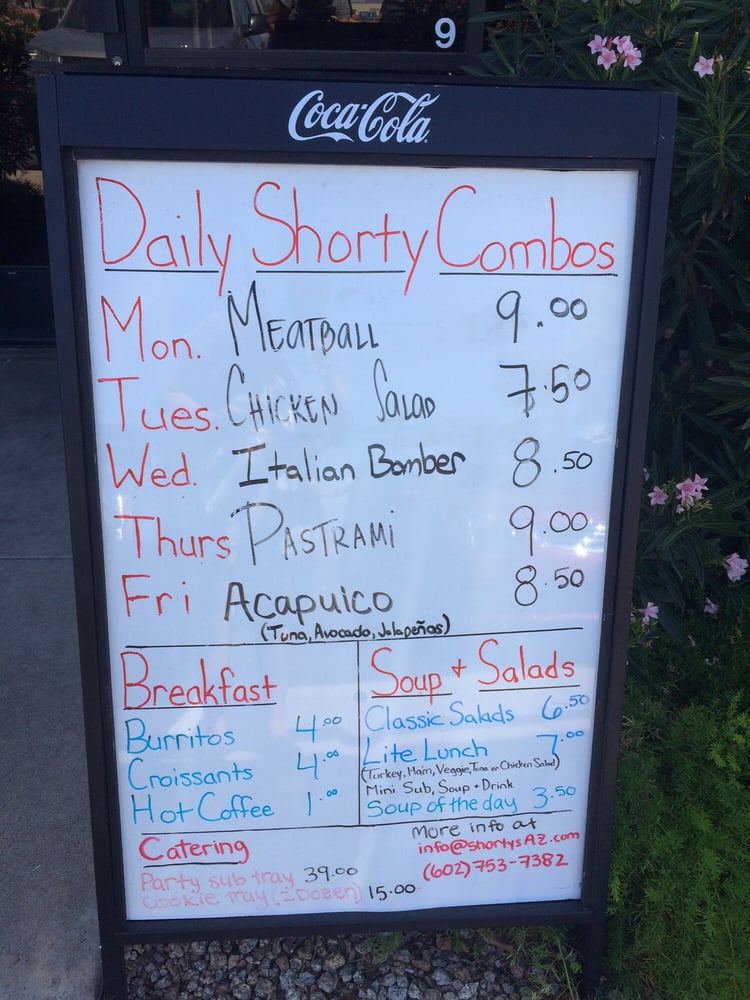 9
Coca-Cola
Daily Shorty Combos
Mon. MEATBALL 9.00
Tues. CHICKEN SALAD 7.50
Wed. Italian Bomber 8.50
Thurs PASTRAMI 9.00
Fri Acapulco 8.50
(Tuna, Avocado, Jalapeñas)
Breakfast
Burritos 4.00
Croissants 4.00
Hot Coffee 1.00
Soup + Salads
Classic Salads 6.50
Lite Lunch 7.00
(Turkey, Ham, Veggie, Tuna or Chicken Salad)
Mini Sub, Soup + Drink
Soup of the day 3.50
Catering
Party sub tray 39.00
Cookie tray (2 Dozen) 15.00
More info at
info@shortysAZ.com
(602) 753-7382